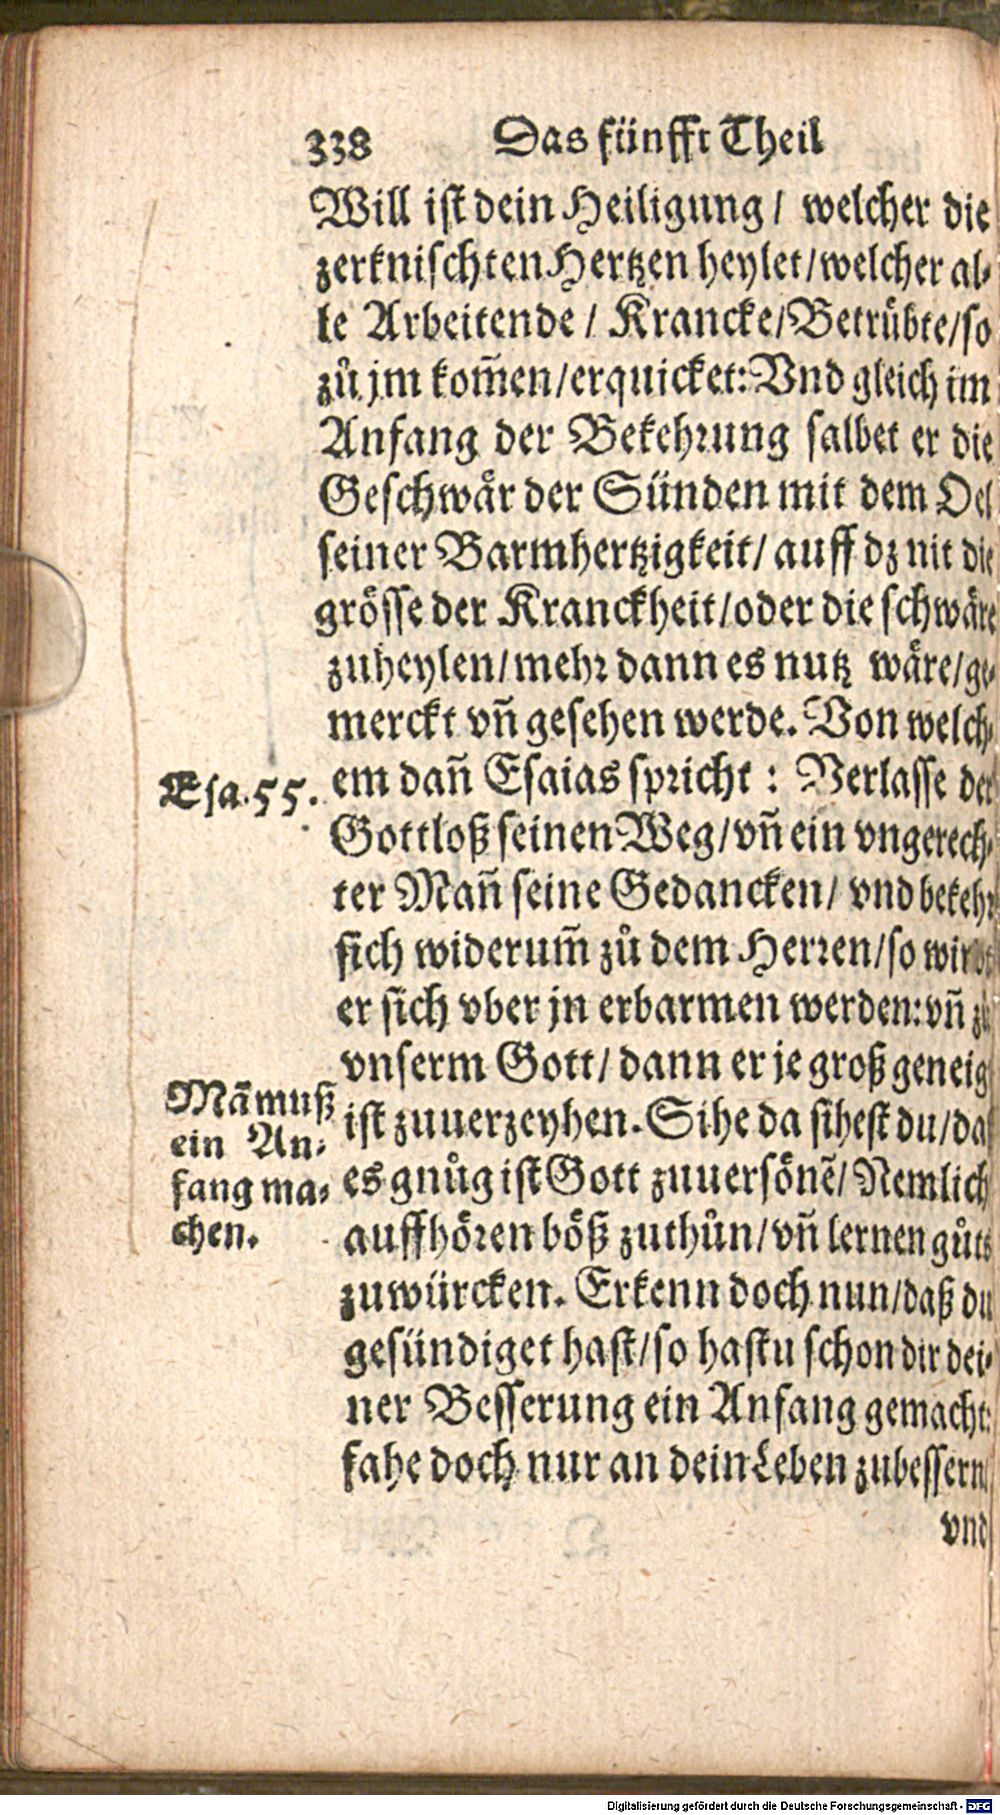 338 Das fünfft Theil
Will ist dein Heiligung / welcher die
zerknischten Hertzen heylet / welcher al-
le Arbeitende / Krancke / Betrübte / so
zů jm kom̃en / erquicket: Vnd gleich im
Anfang der Bekehrung salbet er die
Geschwår der Sünden mit dem Oel
seiner Barmhertzigkeit / auff dz nit die
grösse der Kranckheit / oder die schwåre
zuheylen / mehr dann es nutz wåre / ge-
merckt vñ gesehen werde. Von welch-
Esa. 55.
em dañ Esaias spricht : Verlasse der
Gottloß seinen Weg / vñ ein vngerech-
ter Mañ seine Gedancken / vnd bekehr
sich widerum̃ zů dem Herren / so wirdt
er sich vber jn erbarmen werden: vñ zů
vnserm Gott / dann er je groß geneigt
Mã muß
ein An-
fang ma-
chen.
ist zuuerzeyhen. Sihe da sihest du / daß
es gnůg ist Gott zuuersönẽ / Nemlich
auffhören böß zuthůn / vñ lernen gůts
zuwürcken. Erkenn doch nun / daß du
gesündiget hast / so hastu schon dir dei-
ner Besserung ein Anfang gemacht:
fahe doch nur an dein Leben zubessern
vnd
Digitalisierung gefördert durch die Deutsche Forschungsgemeinschaft - DFG